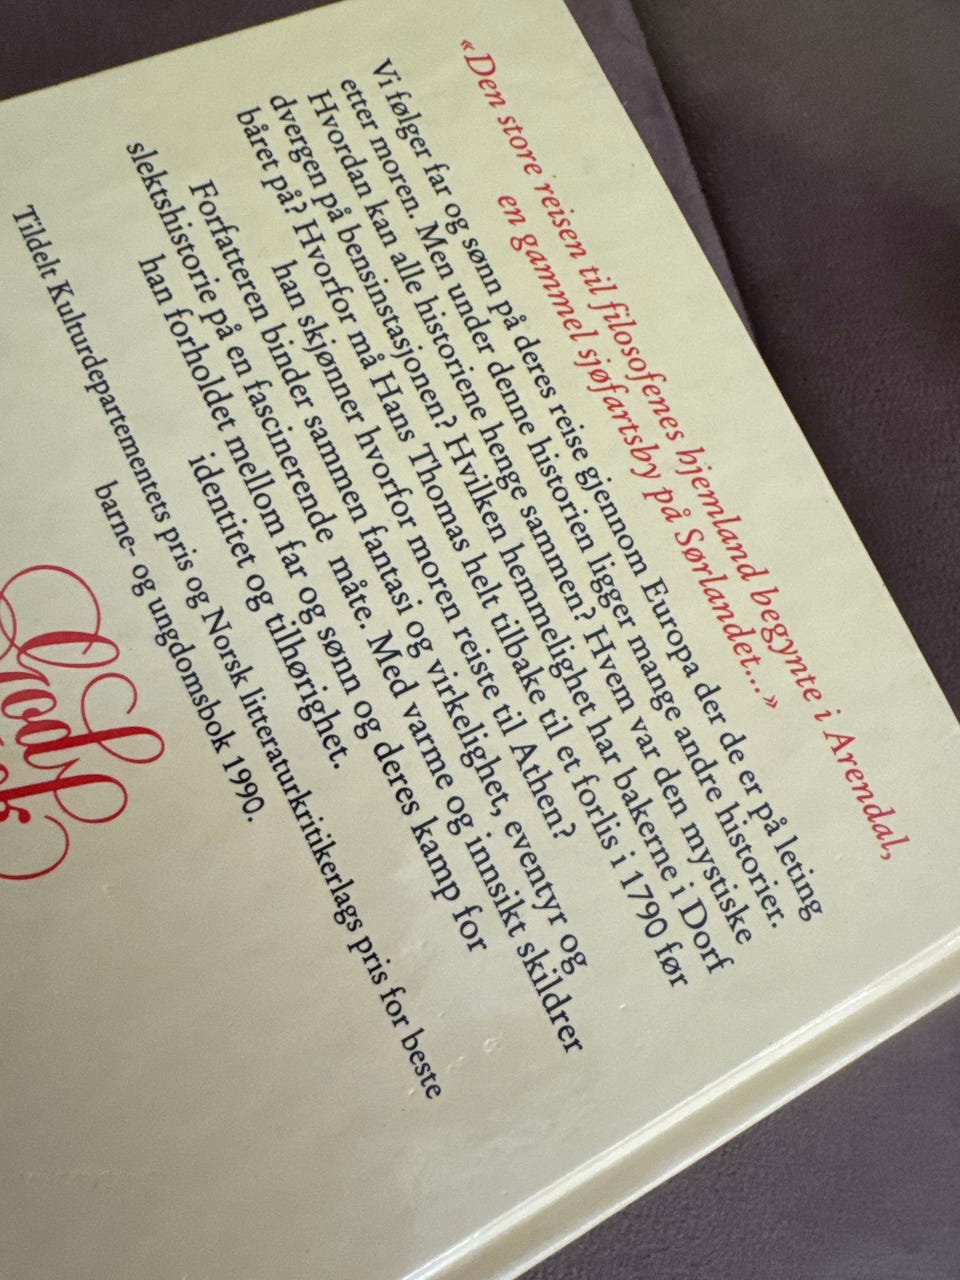 «Den store reisen til filosofenes hjemland begynte i Arendal,
en gammel sjøfartsby på Sørlandet...»
Vi følger far og sønn på deres reise gjennom Europa der de er på leting
etter moren. Men under denne historien ligger mange andre historier.
Hvordan kan alle historiene henge sammen? Hvem var den mystiske
dvergen på bensinstasjonen? Hvilken hemmelighet har bakerne i Dorf
båret på? Hvorfor må Hans Thomas helt tilbake til et forlis i 1790 før
han skjønner hvorfor moren reiste til Athen?
Forfatteren binder sammen fantasi og virkelighet, eventyr og
slektshistorie på en fascinerende måte. Med varme og innsikt skildrer
han forholdet mellom far og sønn og deres kamp for
identitet og tilhørighet.
Tildelt Kulturdepartementets pris og Norsk litteraturkritikerlags pris for beste
barne- og ungdomsbok 1990.
God